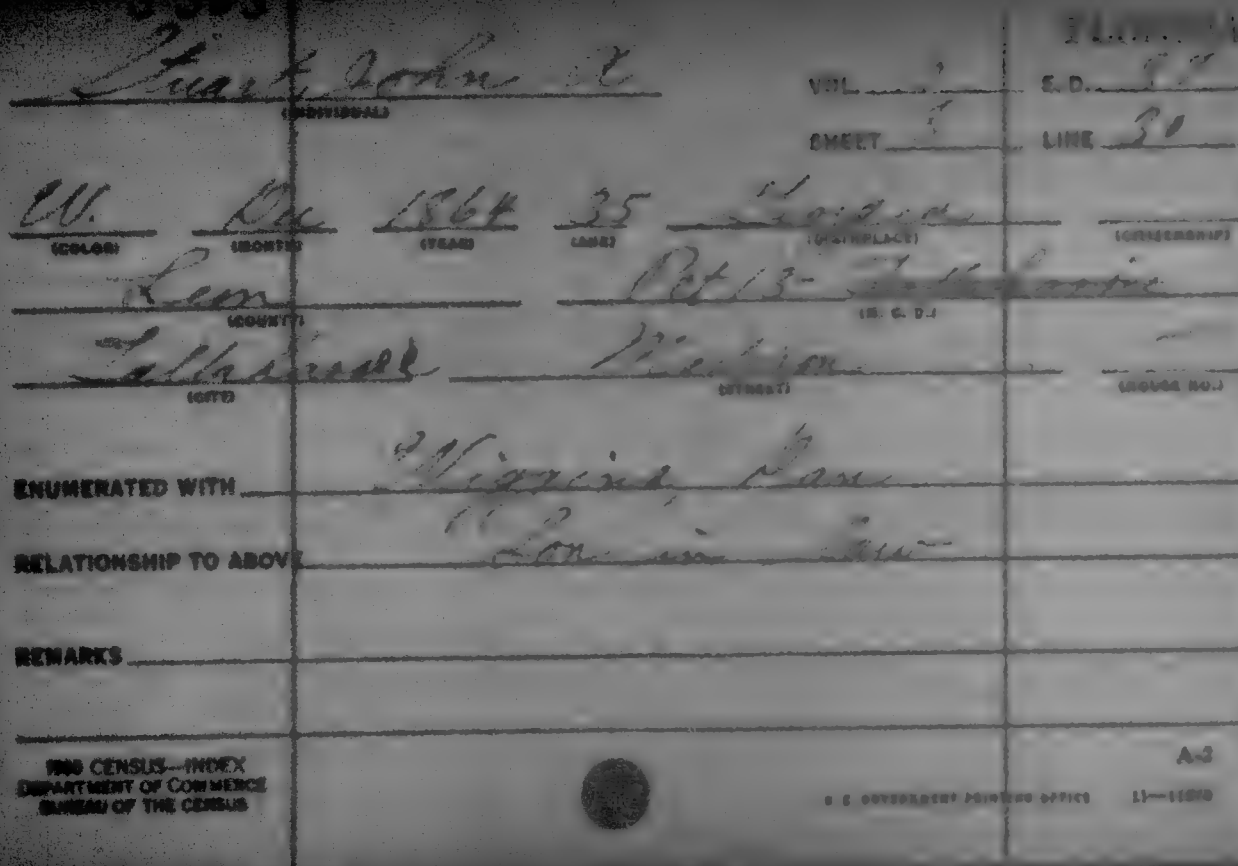 Stuart, John A
(INDIVIDUAL)
VOL.
E. D.
SHEET
LINE 30
W. Dec 1864 35 Georgia
(COLOR) (MONTH) (YEAR) (AGE) (BIRTHPLACE) (CITIZENSHIP)
Leon Pct 13- Tallahassee
(COUNTY) (M. C. D.)
Tallahassee
(CITY) (STREET) (HOUSE NO.)
ENUMERATED WITH Wiggins, Dan
RELATIONSHIP TO ABOVE Son in law
REMARKS
1900 CENSUS—INDEX
DEPARTMENT OF COMMERCE
BUREAU OF THE CENSUS
A-2
U. S. GOVERNMENT PRINTING OFFICE